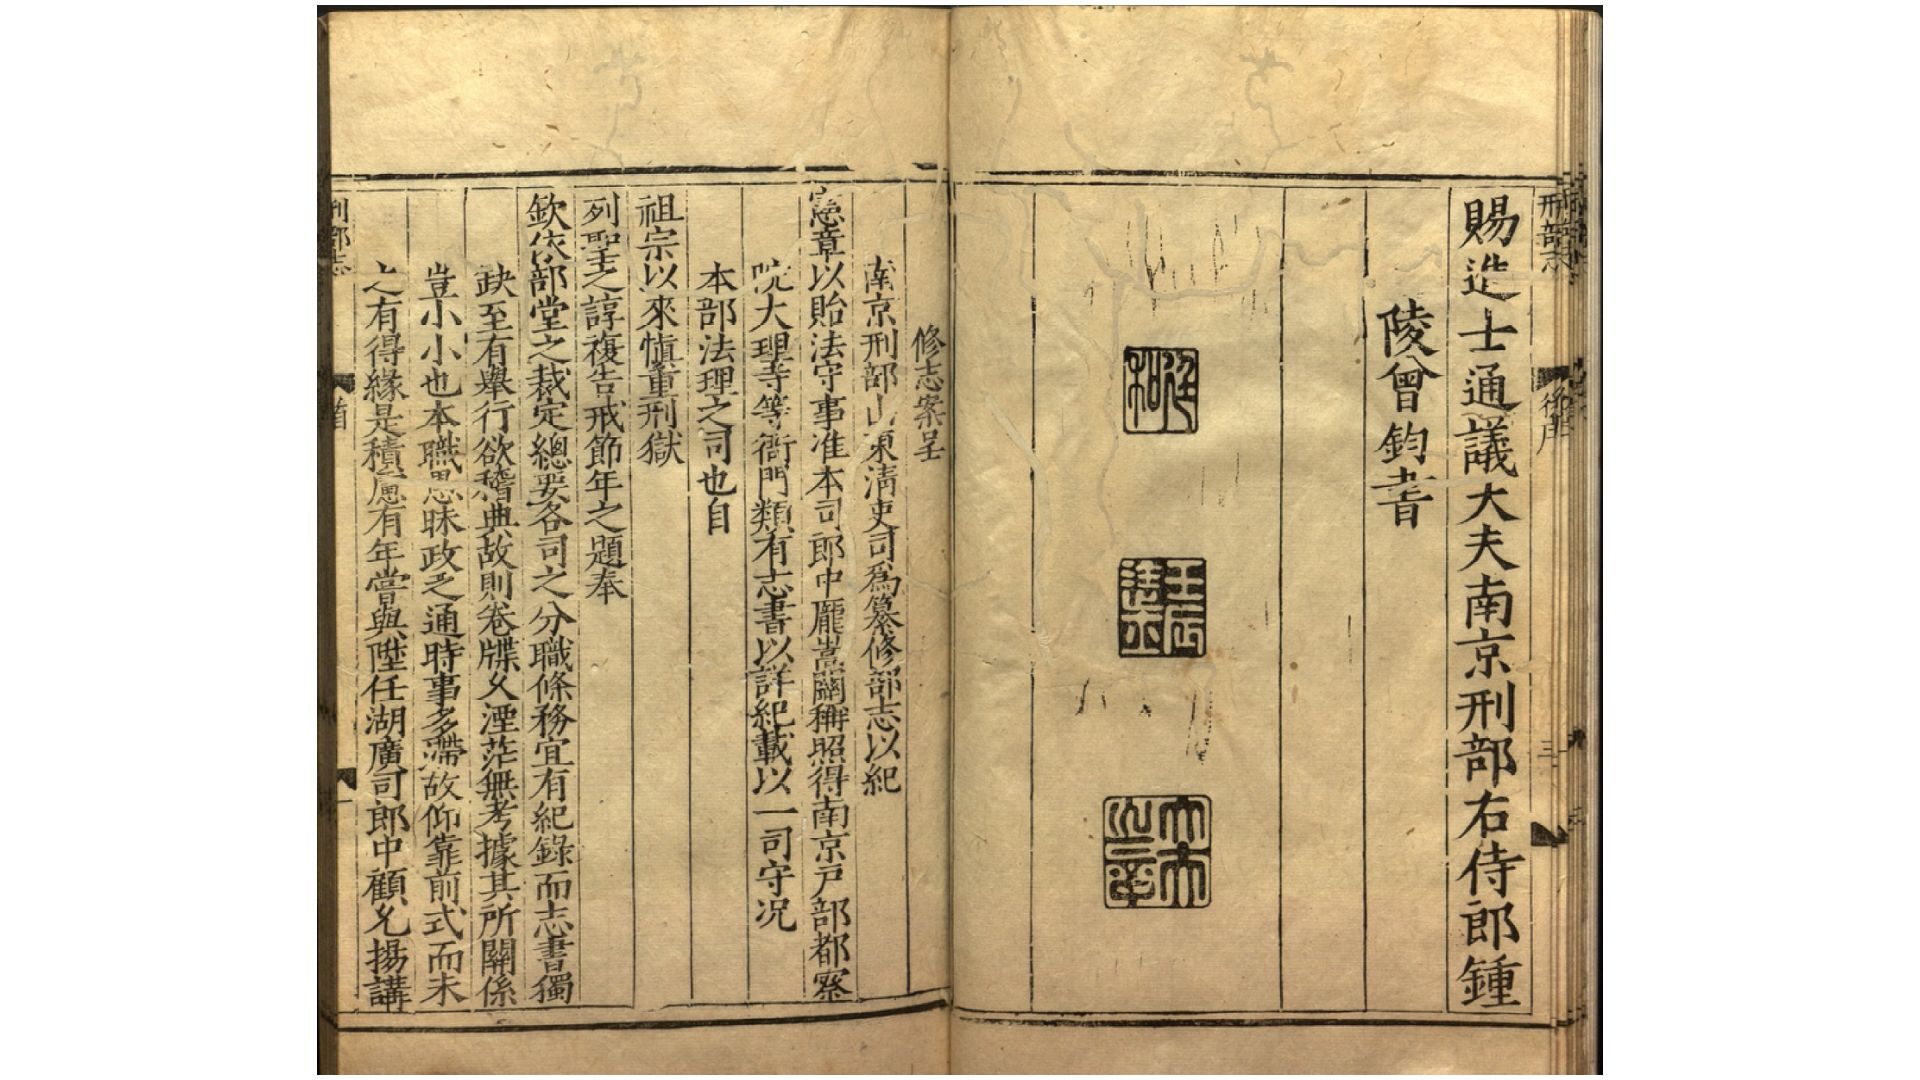 刑部志
後戶
三
賜進士通議大夫南京刑部右侍郎鍾
陵曾鈞書
壬辰進士
修志案呈
南京刑部山東清吏司為纂修部志以紀
憲章以貽法守事准本司郎中龐嵩關稱照得南京戶部都察
院大理寺等衙門類有志書以詳紀載以一司守况
本部法理之司也自
祖宗以來慎重刑獄
列聖之諄複告戒節年之題奉
欽依部堂之裁定總要各司之分職條務宜有紀錄而志書獨
缺至有舉行欲稽典故則卷牒乆湮茫無考據其所關係
豈小小也本職思昧政乏通時事多滯故仰靠前式而未
之有得緣是積慮有年嘗與陞任湖廣司郎中顧允揚講
刑部志
首
一